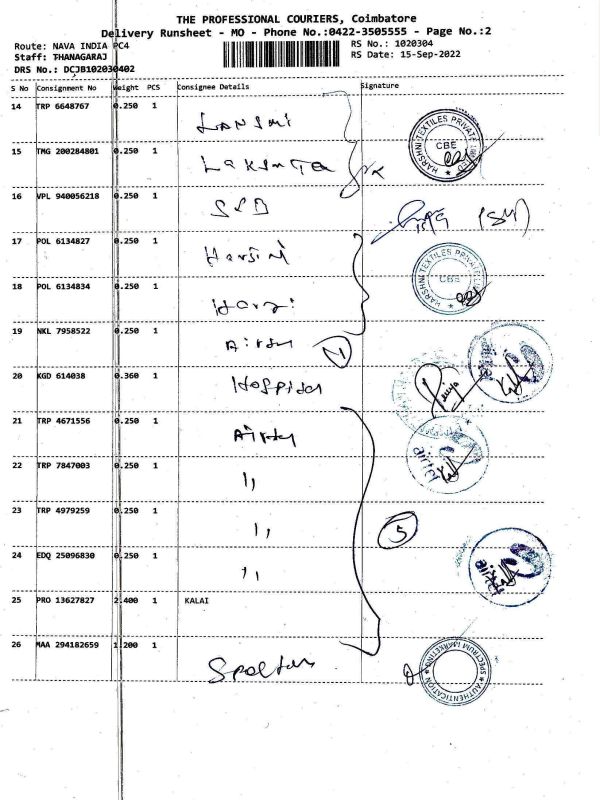 THE PROFESSIONAL COURIERS, Coimbatore
Delivery Runsheet - MO - Phone No.:0422-3505555 - Page No.:2
Route: NAVA INDIA PC4
RS No.: 1020304
Staff: THANAGARAJ
RS Date: 15-Sep-2022
DRS No.: DCJB102030402
S No Consignment No Weight PCS Consignee Details Signature
14 TRP 6648767 0.250 1
HARSHNI TEXTILES PRIVATE LIMITED CBE
15 TMG 200284801 0.250 1
16 VPL 940056218 0.250 1
17 POL 6134827 0.250 1 Harsini
HARSHNI TEXTILES PRIVATE LIMITED CBE
18 POL 6134834 0.250 1
19 NKL 7958522 0.250 1 Airtel
20 KGD 614038 0.360 1 Hospital
21 TRP 4671556 0.250 1 Airtel
airtel
22 TRP 7847003 0.250 1 "
23 TRP 4979259 0.250 1 "
5
24 EDQ 25096830 0.250 1 "
25 PRO 13627827 2.400 1 KALAI
26 MAA 294182659 1.200 1
AUTHENTICATION SPECTRUM MARKETING